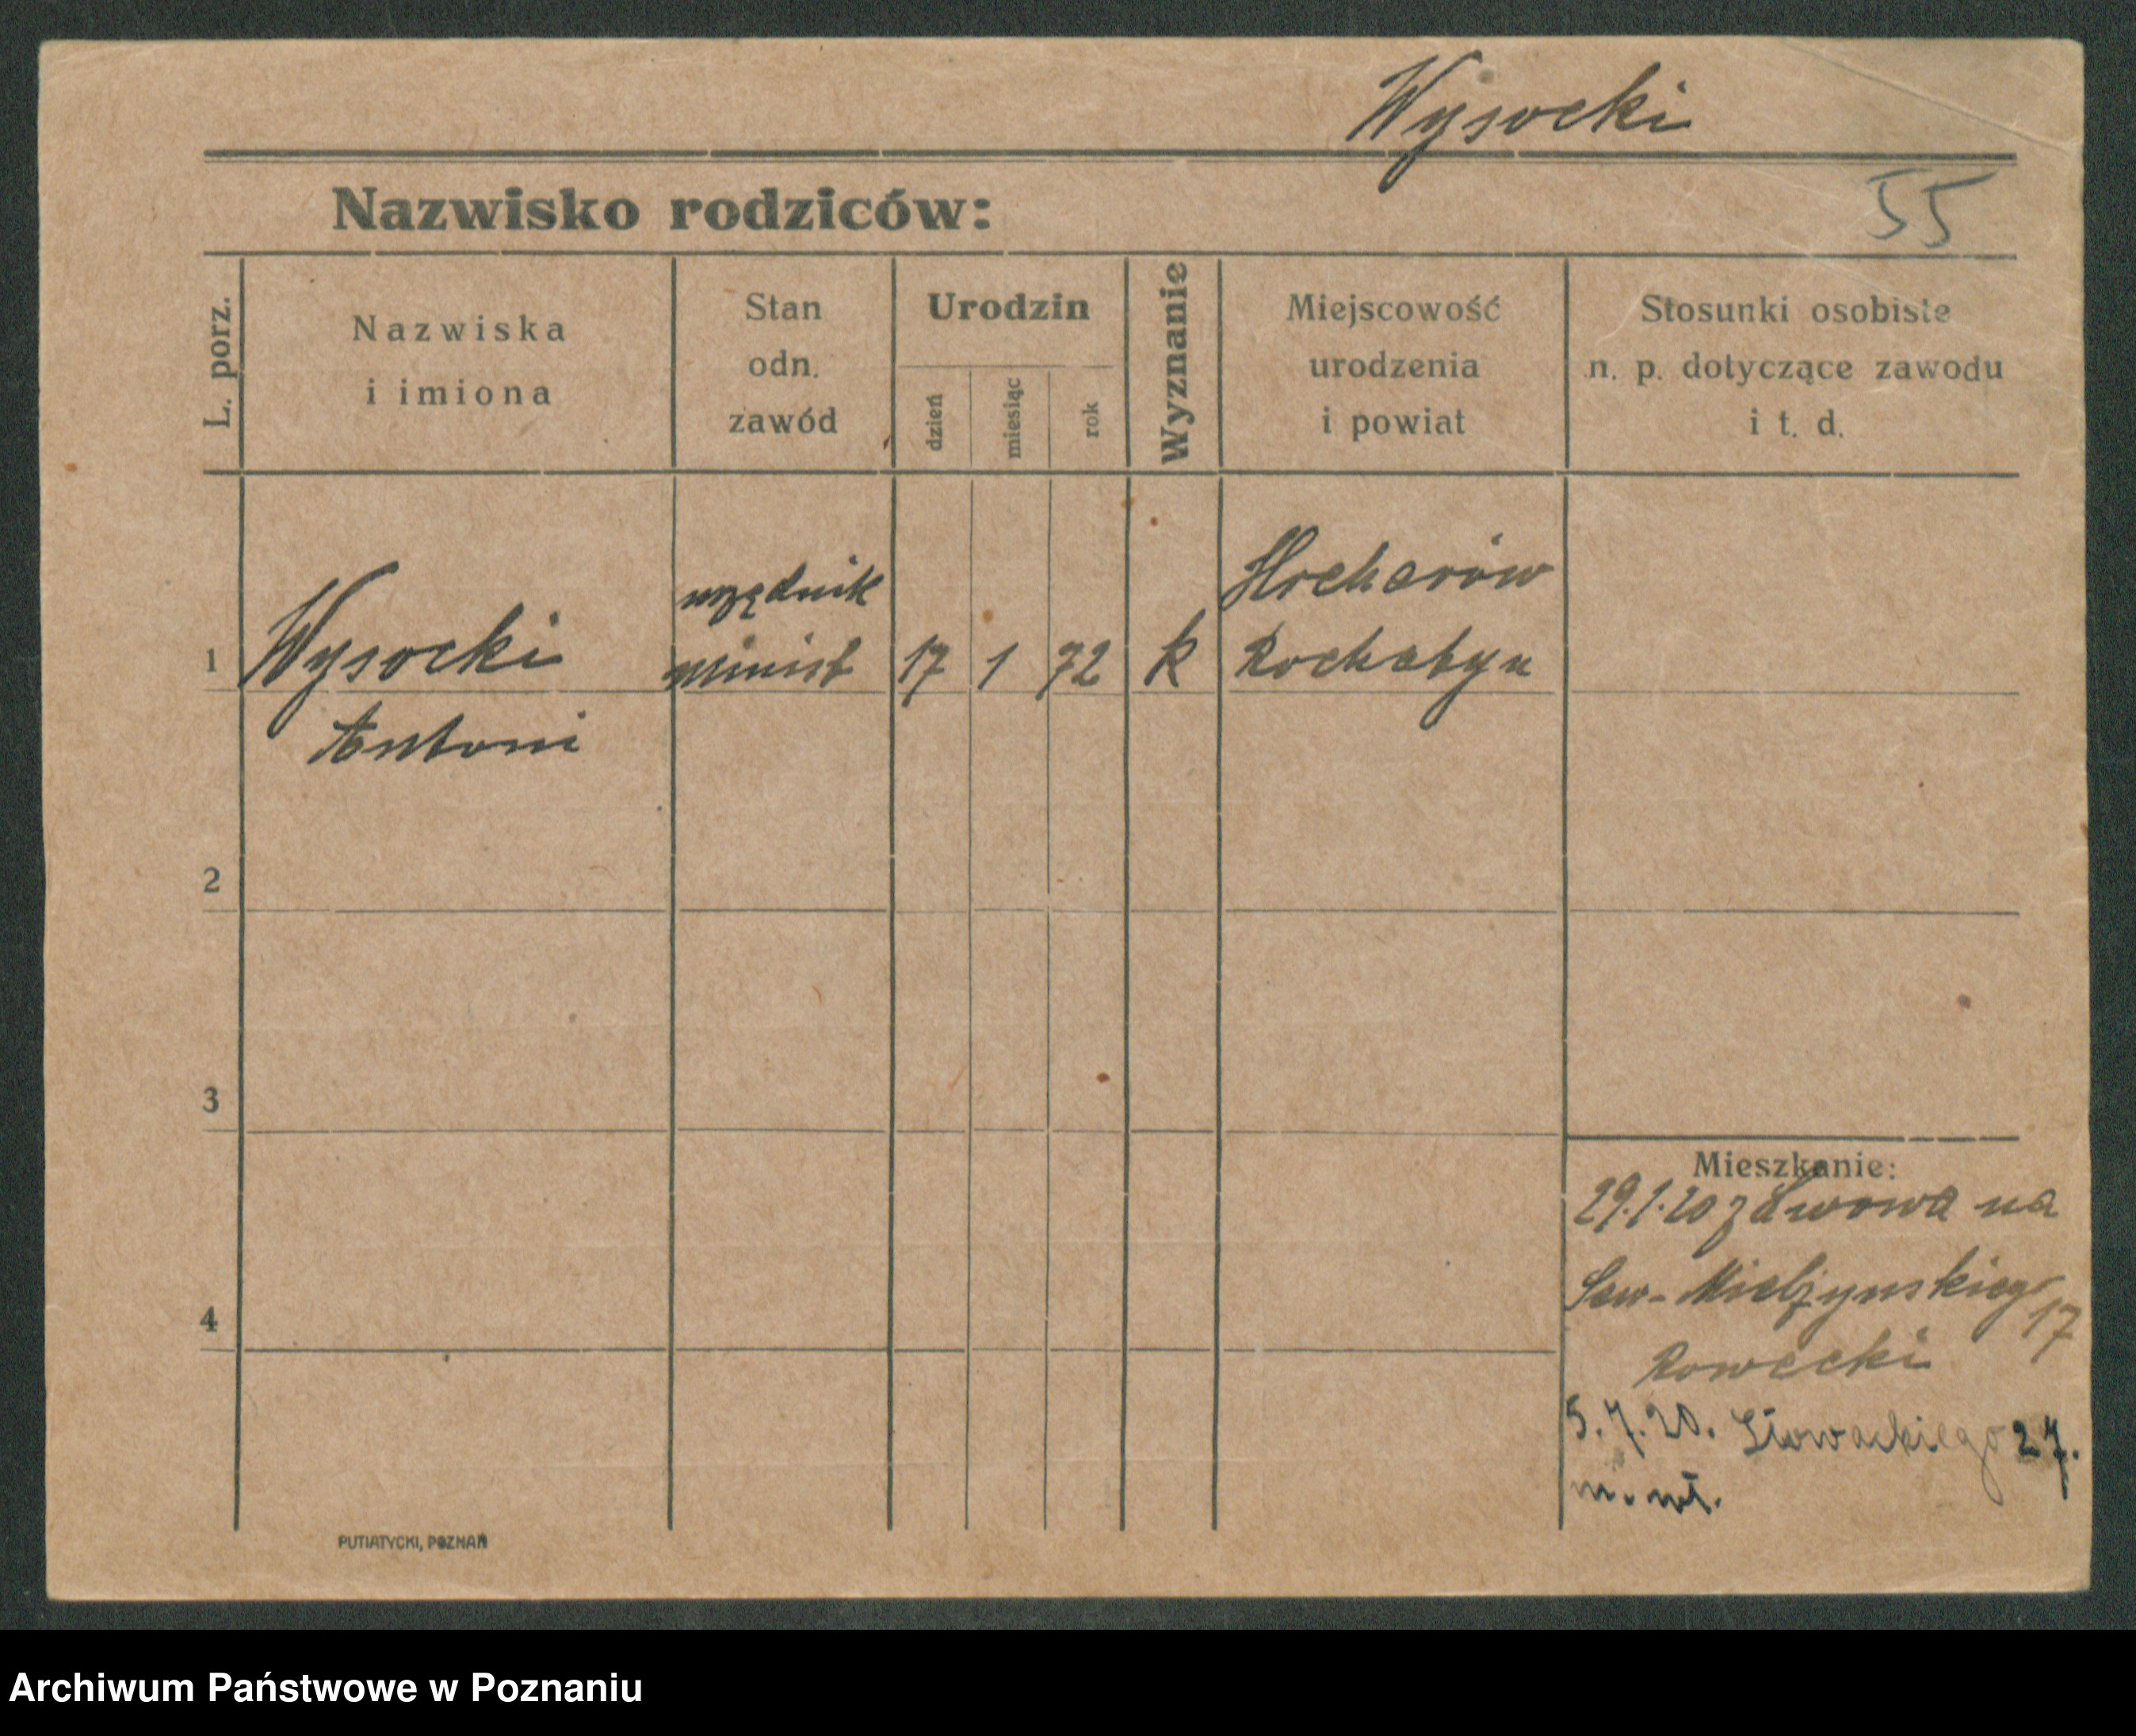 Wysocki
Nazwisko rodziców:
55
L. porz.
Nazwiska
i imiona
Stan
odn.
zawód
Urodzin
dzień
miesiąc
rok
Wyznanie
Miejscowość
urodzenia
i powiat
Stosunki osobiste
n. p. dotyczące zawodu
i t. d.
1
Wysocki
Antoni
urzędnik
minist
17
1
72
k
Rochatyn
2
3
4
Mieszkanie:
29.1.20 z Lwowa na
Sew-Mielżynskiego 17
Rowecki
5.7.20. Słowackiego 27.
PUTIATYCKI, POZNAŃ
Archiwum Państwowe w Poznaniu